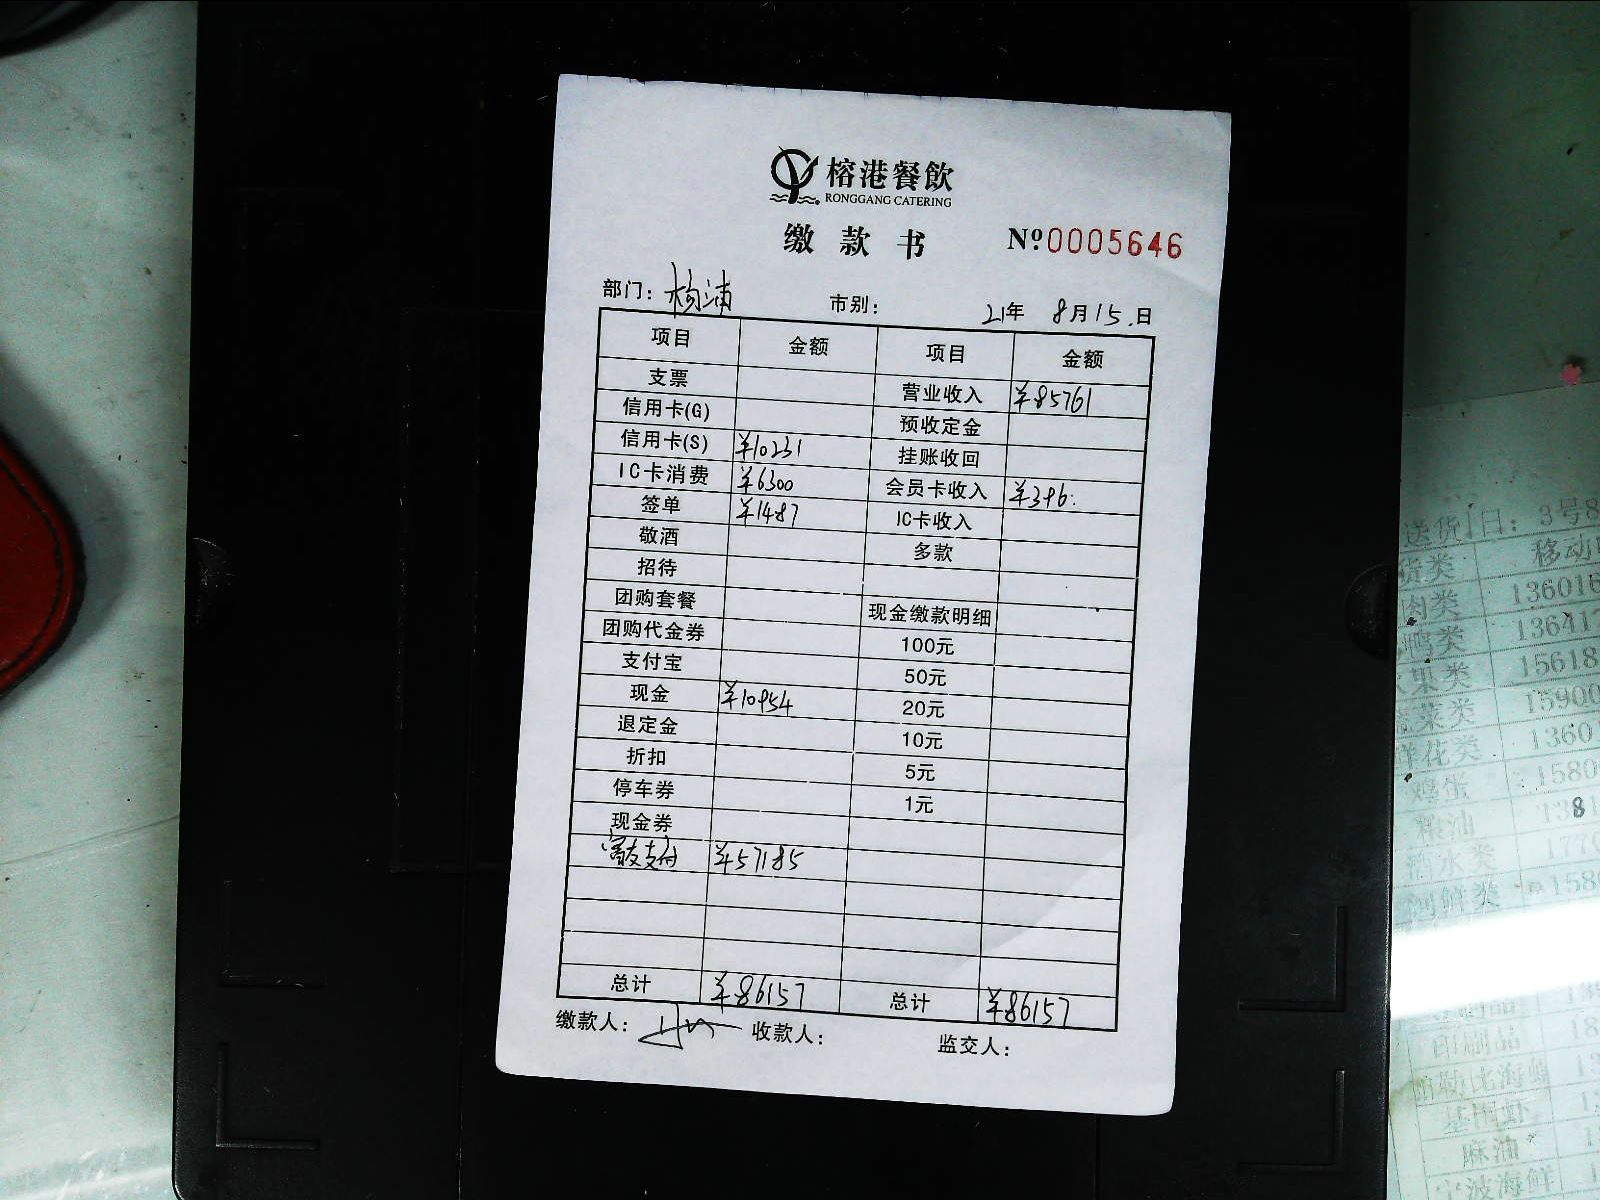 榕港餐飲
RONGGANG CATERING
缴款书 Nº0005646
部门：杨浦 市别： 21年 8月15.日
项目 金额 项目 金额
支票 营业收入 ¥85761
信用卡(G) 预收定金
信用卡(S) ¥10231 挂账收回
IC卡消费 ¥6300 会员卡收入 ¥396.
签单 ¥1487 IC卡收入
敬酒 多款
招待
团购套餐 现金缴款明细
团购代金券 100元
支付宝 50元
现金 ¥10954 20元
退定金 10元
折扣 5元
停车券 1元
现金券
富友支付 ¥57185
总计 ¥86157 总计 ¥86157
缴款人： 收款人： 监交人：
送货日：3号8
货类 移动
肉类 136016
鸭类 136417
15618
菜类 15900
1360
鸡蛋 1580
粮油 138
酒水类 1770
158
印刷品 18
基围虾
麻油
宁波海鲜